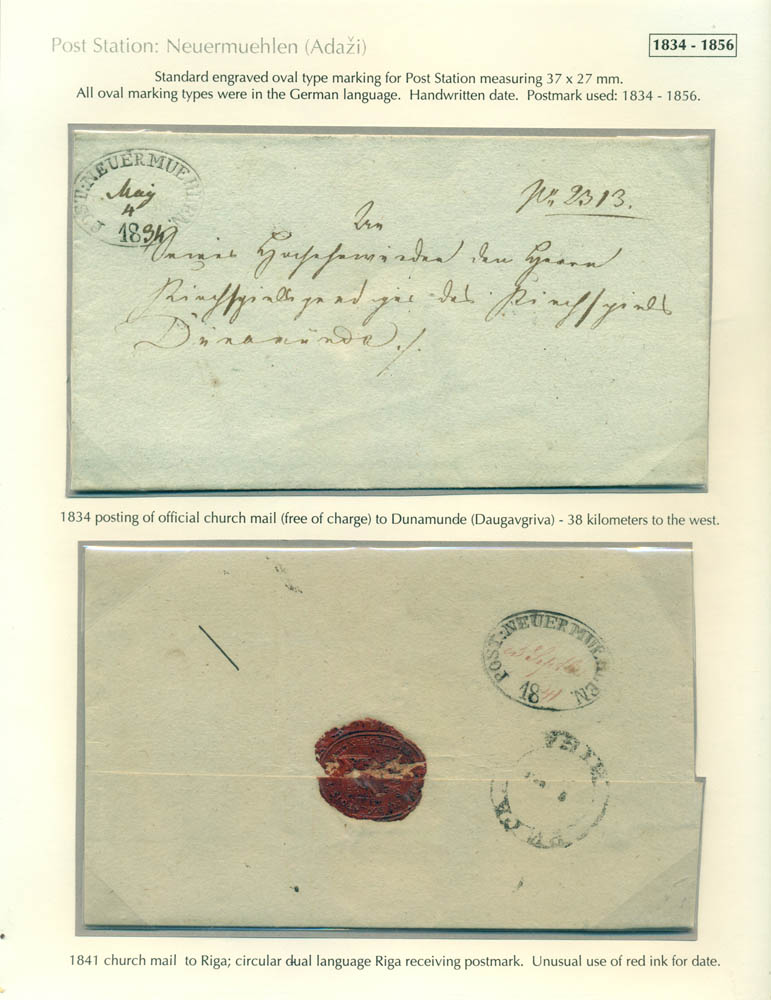 Post Station: Neuermuehlen (Adaži)
1834 - 1856
Standard engraved oval type marking for Post Station measuring 37 x 27 mm.
All oval marking types were in the German language.  Handwritten date.  Postmark used: 1834 - 1856.
POST: NEUERMUEHLEN.
May
4
1834
No 2313.
An
Seiner Hochehrwürden den Herrn
Kirchspielsprediger des Kirchspiels
Dünamünde
1834 posting of official church mail (free of charge) to Dunamunde (Daugavgriva) - 38 kilometers to the west.
POST: NEUERMUEHLEN.
1841
1841 church mail  to Riga; circular dual language Riga receiving postmark.  Unusual use of red ink for date.